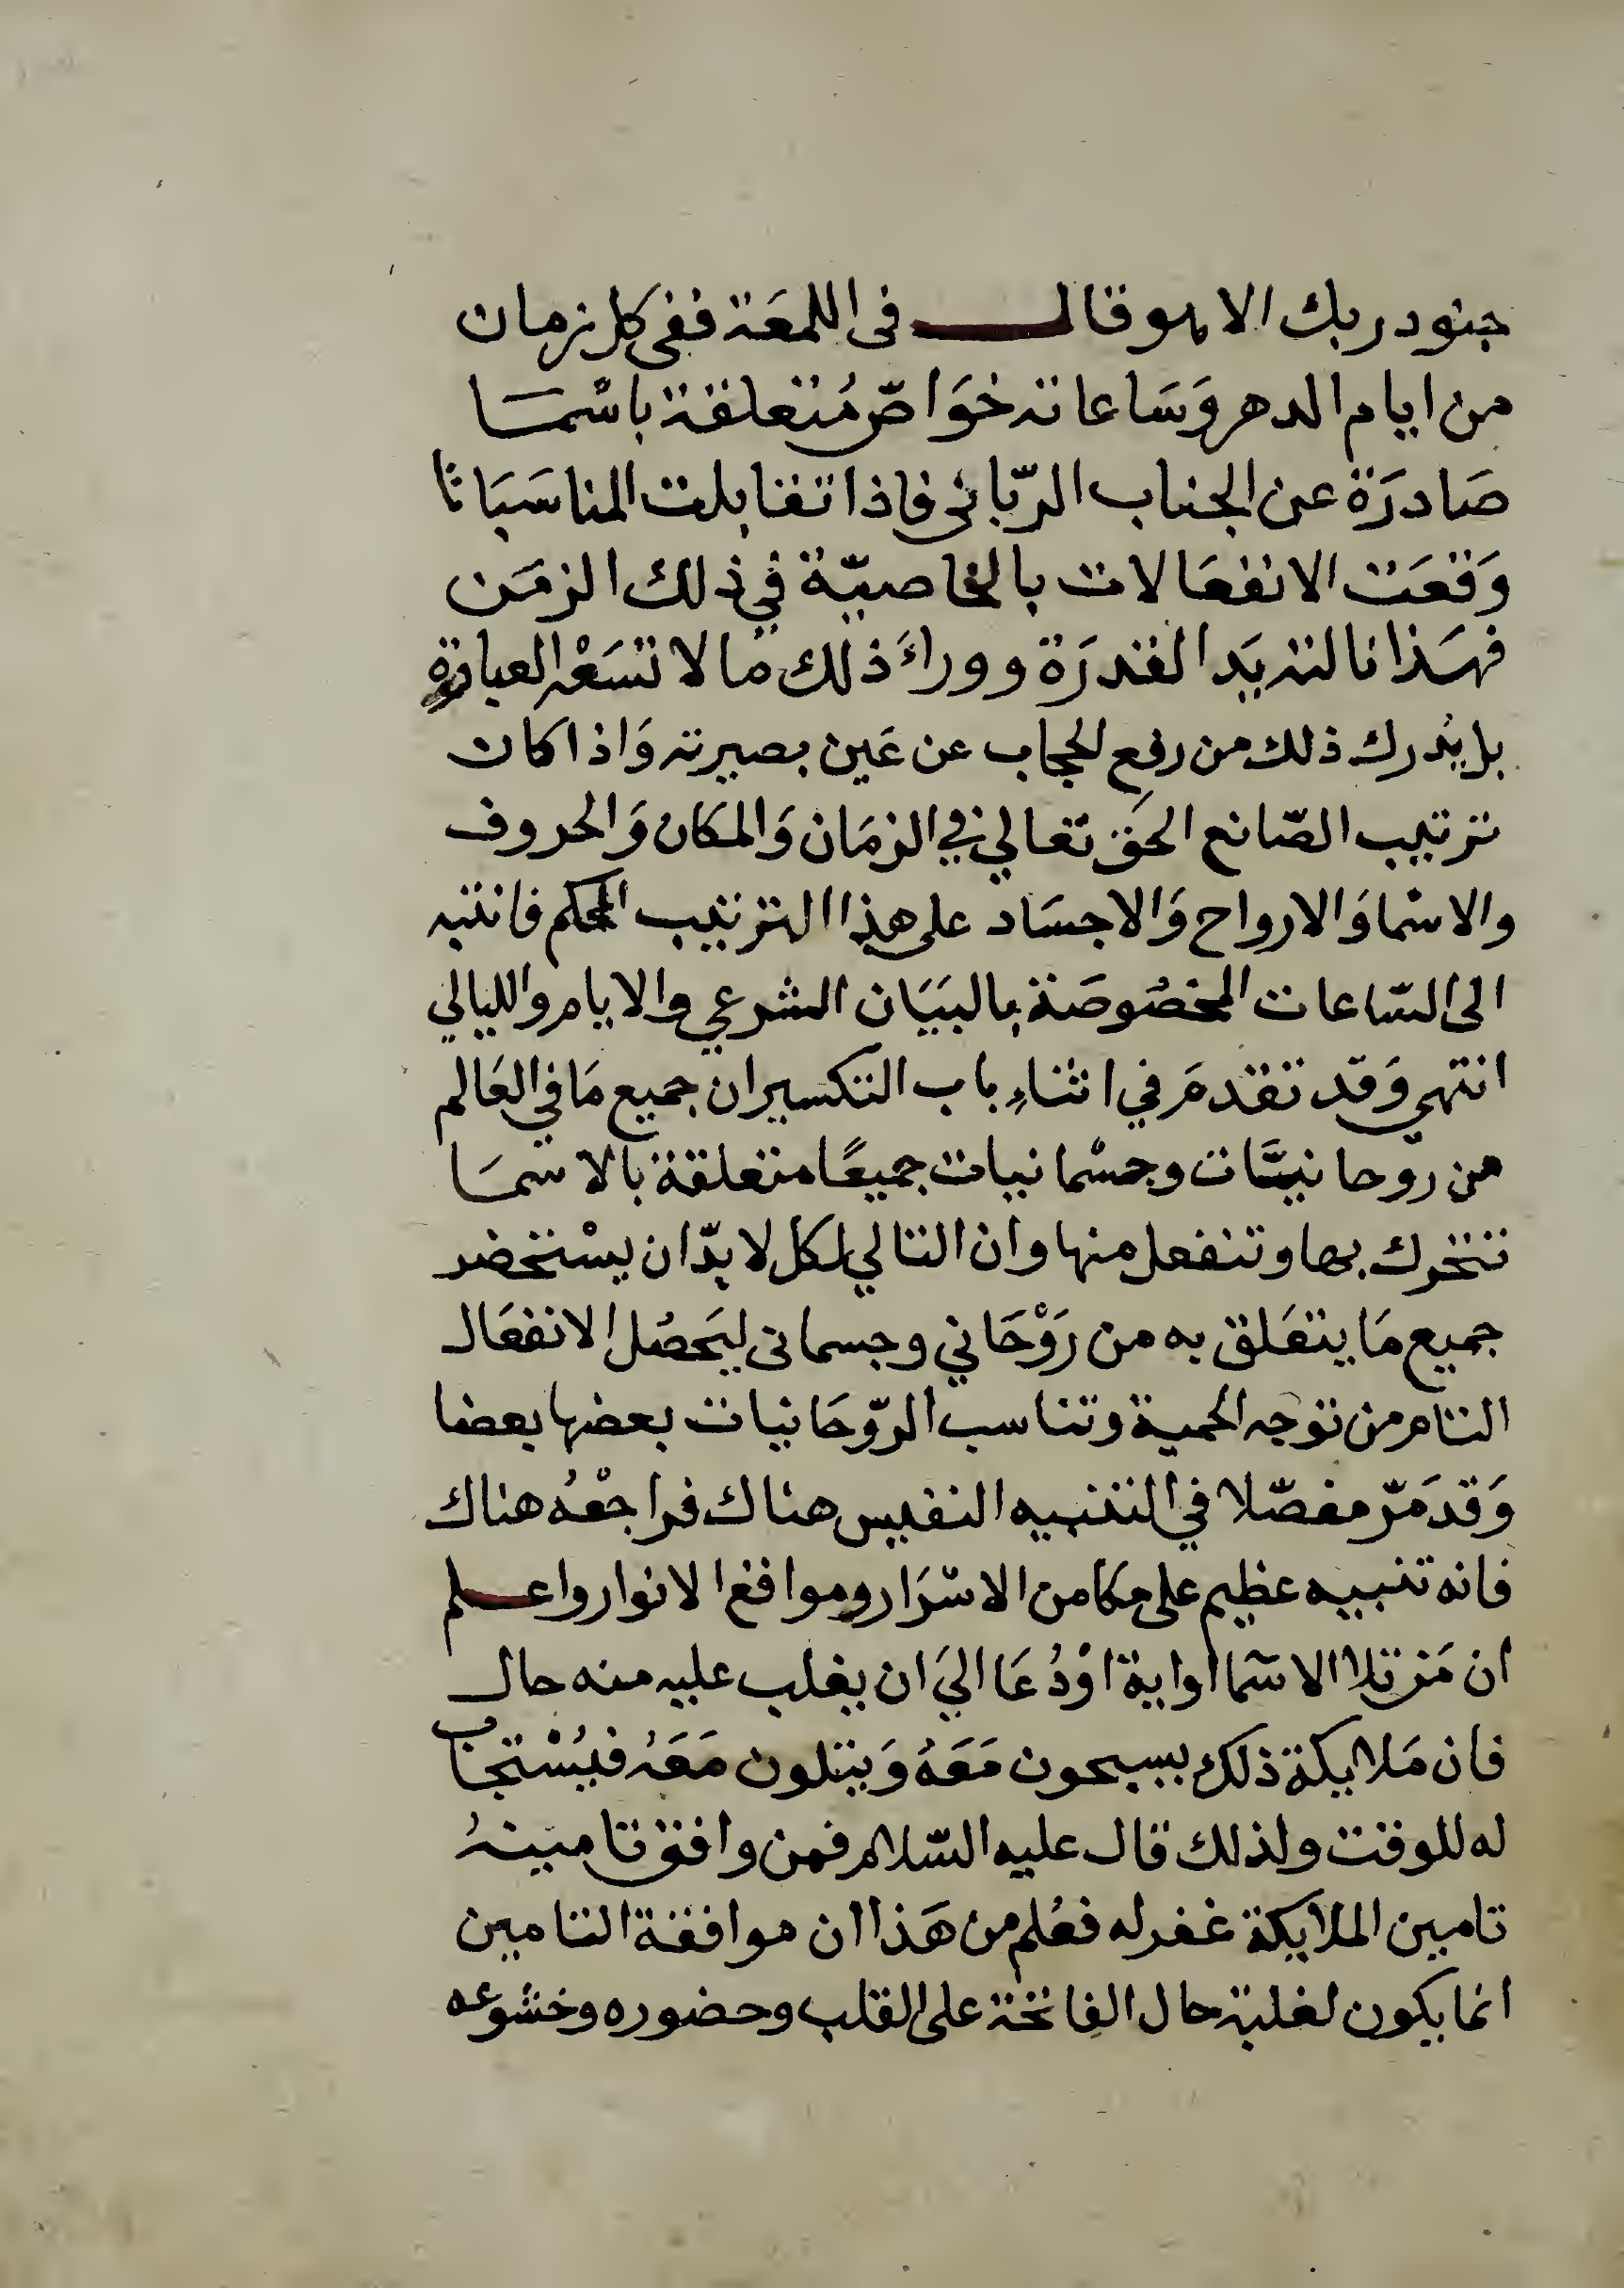 جنود ربك الا هو قال في اللمعة ففي كل زمان
من ايام الدهر وَسَاعاته خَوَاصّ مُتعلقة باسْمَا
صَادرَة عن الجناب الرّباني فاذا تقابلت المناسَبَاتا
وَقعَت الانفعَالات بالخاصيّة في ذلك الزمَن
فهَذا نا لتدبيَد القدرَة ووراءَ ذلك ما لا تسَعْه العبارة
بل يُدرك ذلك من رفِع الحجاب عن عَين بصيرته وَاذا كان
ترتيب الصّانع الحَق تعَالي في الزمَان وَالمكان وَالحروف
والاسْما وَالارواح وَالاجسَاد على هذا الترتيب المحكم فانتبه
الى السّاعات المخصُوصَة بالبيَان الشرعي والايام والليالي
انتهي وَقد تقدمَ في اثناءِ باب التكسير ان جميع مَا في العَالم
من روحانيَّات وجسْمانيات جميعًا متعلقة بالاسمَا
تتحرك بها وتنفعل منها وان التالي لكل لا بدّ ان يسْتحضر
جميع مَا يتعَلق به من رَوْحَاني وجسماني ليَحصُل الانفعَال
التام من توجه الحمية وتناسب الرّوحَانيات بعضها بعضا
وَقد مَرّ مفصّلا في التنبيه النفيس هناك فراجعْهُ هناك
فانه تنبيه عظيم على مكامن الاسْرَار ومواقع الانوار واعلم
ان مَن تلا الاسمآ او اية اوْدُعَا اليَ ان يغلب عليه منه حال
فان مَلايكة ذلك يسبحون مَعَهُ وَيتلون مَعَهُ فيُسْتجَاب
له للوقت ولذلك قال عليه السّلام فمن وافق تامينهُ
تامين الملايكة غفر له فعُلم من هَذا ان موافقة التامين
انما يكون لغلبة حال الفاتحة على القلب وحضوره وخشوعه